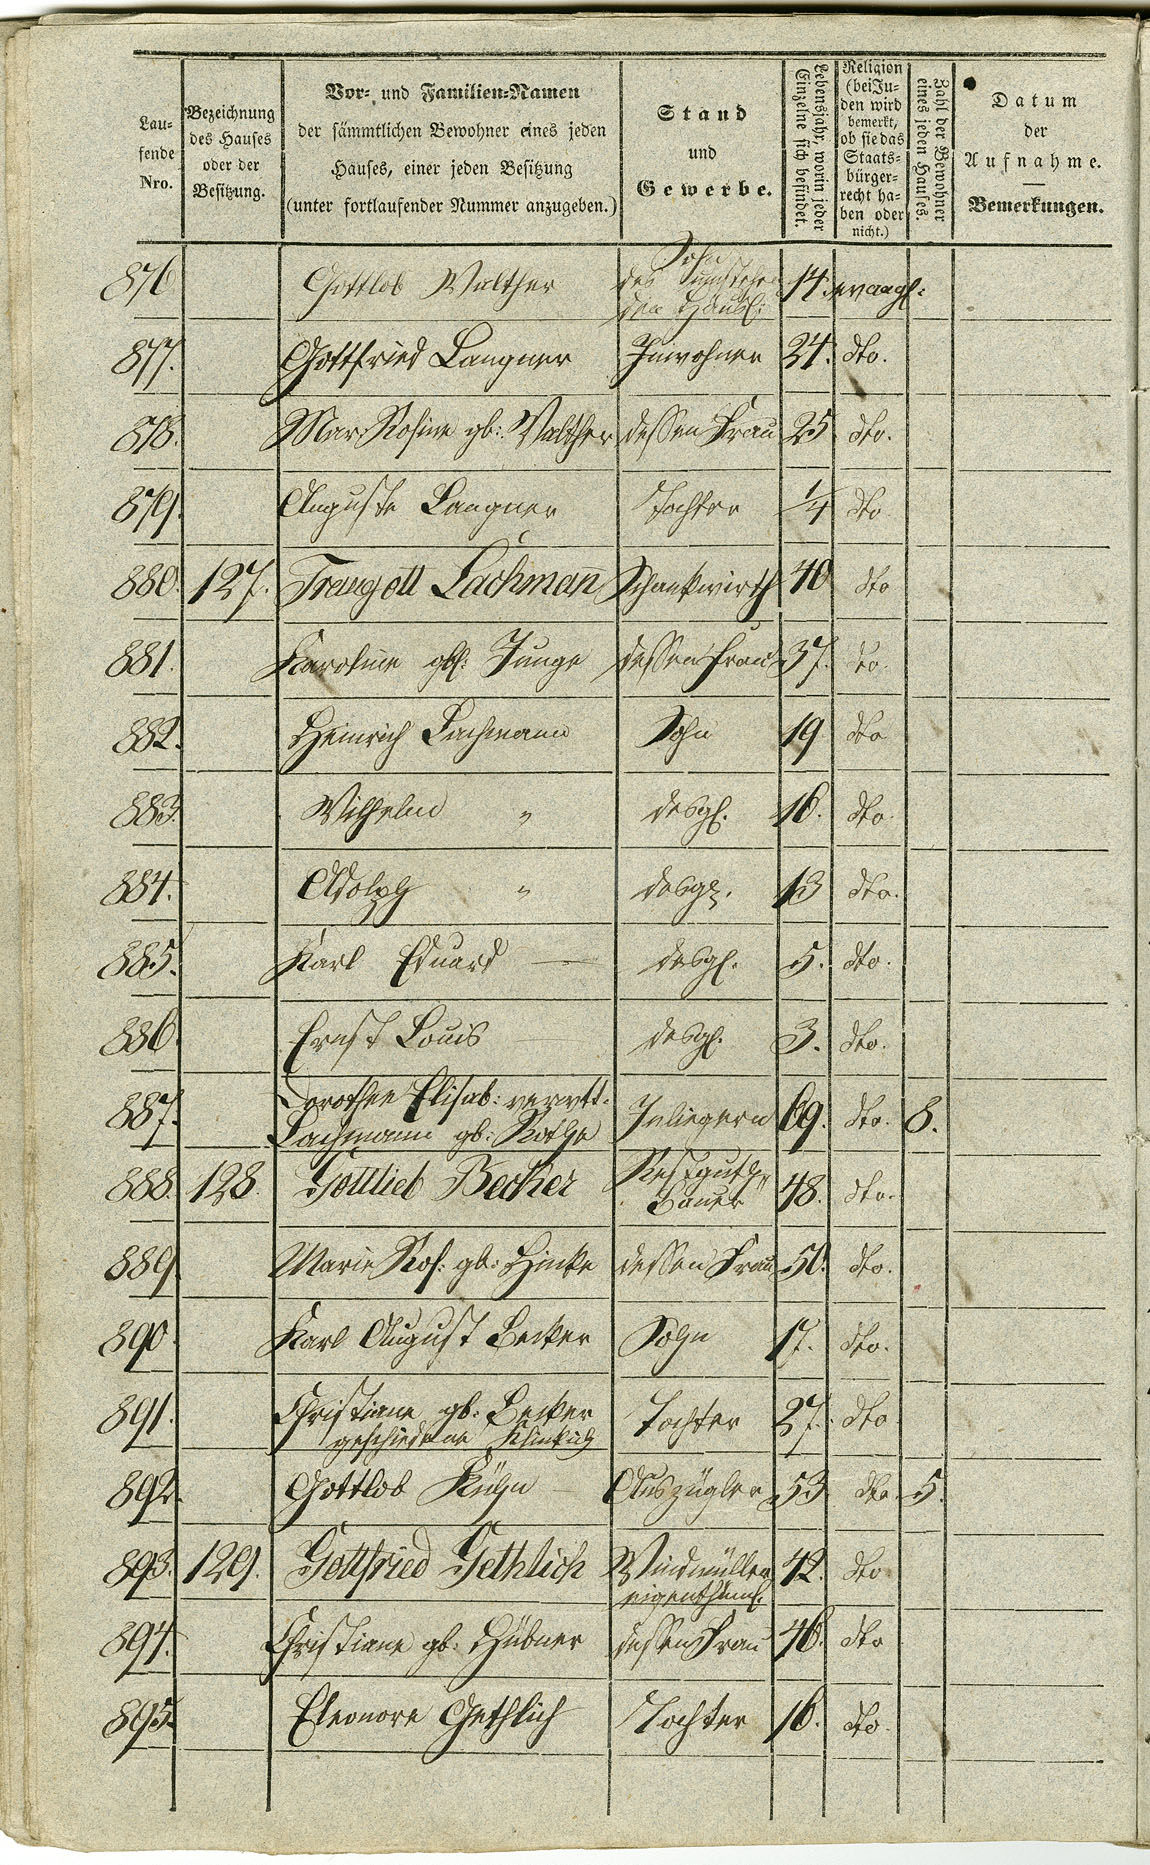 Laufende Nro.
Bezeichnung des Hauses oder der Besitzung.
Vor- und Familien-Namen
der sämmtlichen Bewohner eines jeden
Hauses, einer jeden Besitzung
(unter fortlaufender Nummer anzugeben.)
Stand
und
Gewerbe.
Lebensjahr, worin jeder Einzelne sich befindet.
Religion (bei Juden wird bemerkt, ob sie das Staatsbürgerrecht haben oder nicht.)
Zahl der Bewohner eines jeden Hauses.
Datum
der
Aufnahme.
Bemerkungen.
876 Gottlob Walther Sohn des umstehenden Häusl: 14. evangl:
877. Gottfried Langner Inwohner 24. dto.
878. Mar. Rosine gb: Walther dessen Frau 25 dto.
879. Auguste Langner Tochter 1/4 dto
880. 127. Traugott Lachmann Schankwirth 40 dto
881. Karoline gb: Junge dessen Frau 37. dto.
882. Heinrich Lachmann Sohn 19 dto
883. Wilhelm " desgl. 16. dto.
884. Adolph " desgl. 13 dto.
885. Karl Eduard — desgl. 5. dto.
886. Ernst Louis desgl. 3. dto.
887. Dorothee Elisab: verwtt.
Lachmann gb: Rothe Inliegern 69. dto. 8.
888. 128. Gottlieb Becker Restguths Bauer 48. dto.
889 Marie Ros: gb: Hinke dessen Frau 50. dto.
890. Karl August Becker Sohn 17. dto.
891. Christiane gb: Becker
geschiedene Tochter 27. dto
892. Gottlob Kühn Auszügler 53 dto. 5.
893. 129. Gottfried Gethlich Windmüller eigenthüml. 42. dto
894. Christiane gb: Hübner dessen Frau 46. dto
895. Eleonore Gethlich Tochter 16. dto.